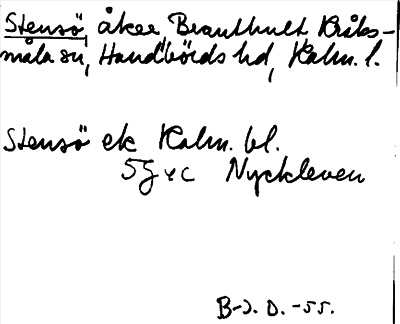 Stensö, åker, Branthult, Kråks-
måla sn, Handbörds hd, Kalm. l.
Stensö ek Kalm. bl.
5G v c Nyckleven
B-J. D. -55.